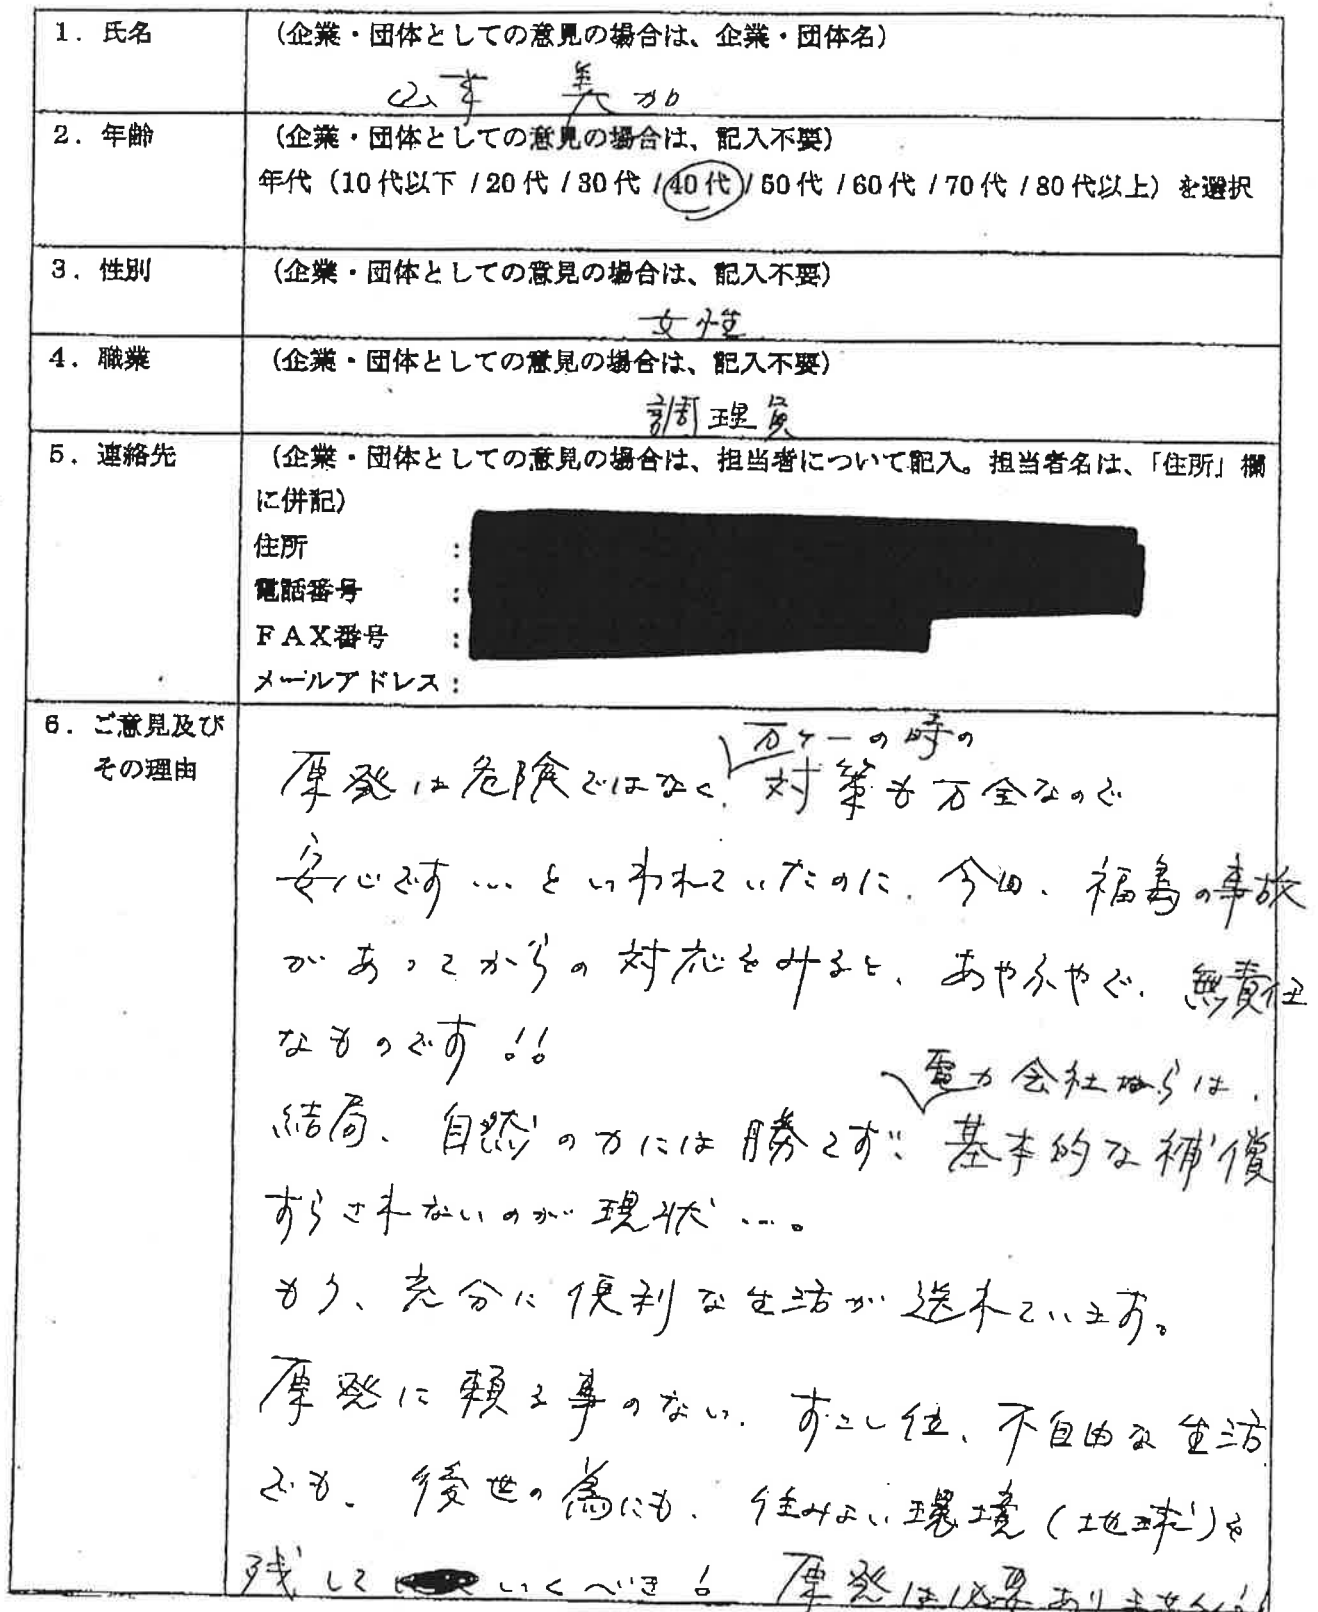 1．氏名
（企業・団体としての意見の場合は、企業・団体名）
山本 美加
2．年齢
（企業・団体としての意見の場合は、記入不要）
年代（10代以下 / 20代 / 30代 / 40代 / 50代 / 60代 / 70代 / 80代以上）を選択
3．性別
（企業・団体としての意見の場合は、記入不要）
女性
4．職業
（企業・団体としての意見の場合は、記入不要）
調理員
5．連絡先
（企業・団体としての意見の場合は、担当者について記入。担当者名は、「住所」欄
に併記）
住所 ：
電話番号 ：
ＦＡＸ番号 ：
メールアドレス：
6．ご意見及び
その理由
万が一の時の
原発は危険ではなく、対策も万全なので
安心です…といわれていたのに、今回、福島の事故
があってからの対応をみると、あやふやで、無責任
なものです!!
電力会社からは、
結局、自然の力には勝てず… 基本的な補償
すらされないのが現状…。
もう、充分に便利な生活が送れています。
原発に頼る事のない、すこし位、不自由な生活
でも、後世の為にも、住みよい環境（地球）を
残して いくべき！ 原発は必要ありません!!